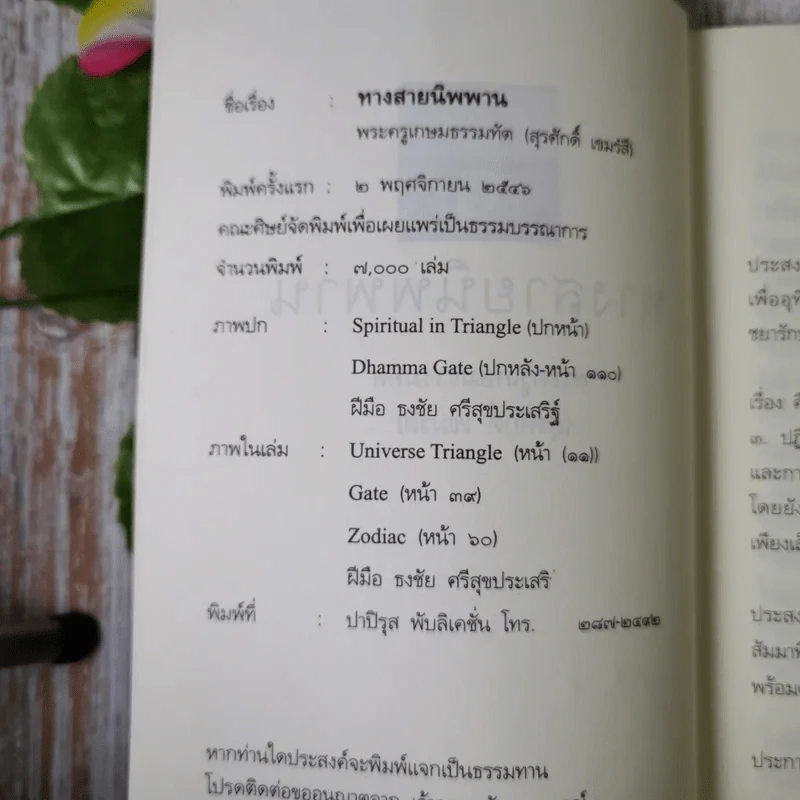 ชื่อเรื่อง : ทางสายนิพพาน
พระครูเกษมธรรมทัต (สุรศักดิ์ เขมรํสี)
พิมพ์ครั้งแรก : ๒ พฤศจิกายน ๒๕๔๖
คณะศิษย์จัดพิมพ์เพื่อเผยแพร่เป็นธรรมบรรณาการ
จำนวนพิมพ์ : ๗,๐๐๐ เล่ม
ภาพปก : Spiritual in Triangle (ปกหน้า)
Dhamma Gate (ปกหลัง-หน้า ๑๑๐)
ฝีมือ ธงชัย ศรีสุขประเสริฐ
ภาพในเล่ม : Universe Triangle (หน้า (๑๑))
Gate (หน้า ๓๙)
Zodiac (หน้า ๖๐)
ฝีมือ ธงชัย ศรีสุขประเสริ
พิมพ์ที่ : ปาปิรุส พับลิเคชั่น โทร. ๒๘๗-๒๔๙๒
หากท่านใดประสงค์จะพิมพ์แจกเป็นธรรมทาน
โปรดติดต่อขออนุญาตจาก
ประสง
เพื่ออุทิ
ชยารัก
เรื่อง
๓. ปฏิ
และกา
โดยยัง
เพียงเ
ประสง
สัมมาทิ
พร้อม
ประกา